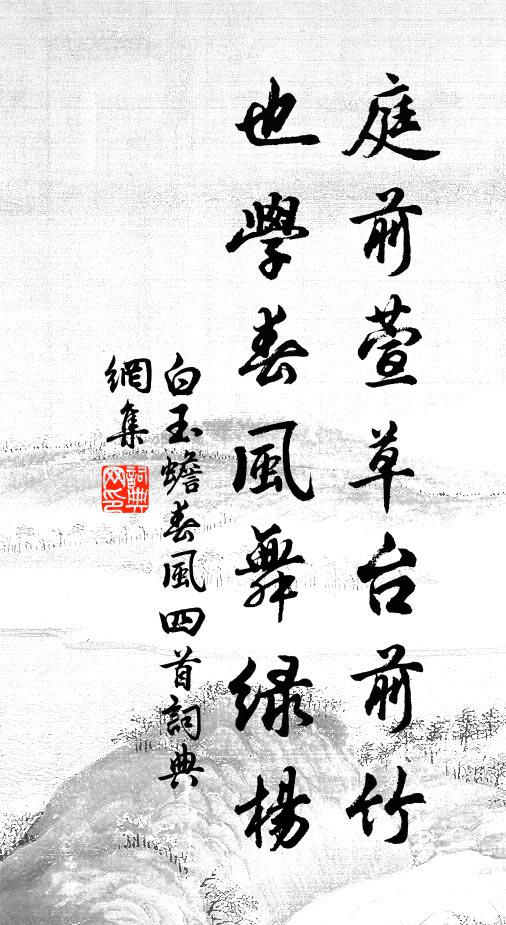 庭前萱草台前竹
也學春風舞绿楊
白玉蟾春風四首詞典
網集
詞典网印